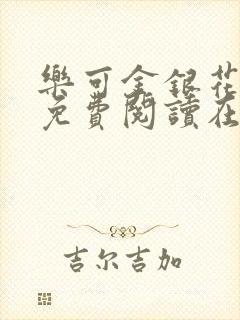 樂可金銀花
免費閱讀在
吉尔吉加